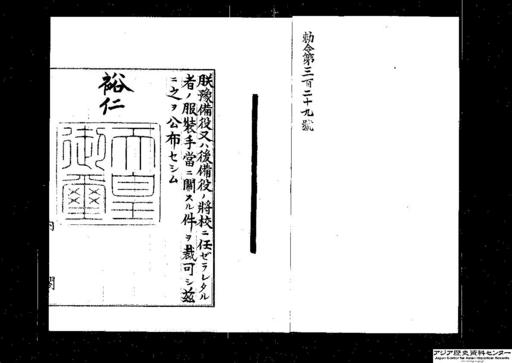 勅令第三百二十九號
朕豫備役又ハ後備役ノ將校ニ任ゼラレタル
者ノ服裝手當ニ關スル件ヲ裁可シ茲
ニ之ヲ公布セシム
裕仁
天皇
御璽
内
閣
アジア歴史資料センター
Japan Center for Asian Historical Records